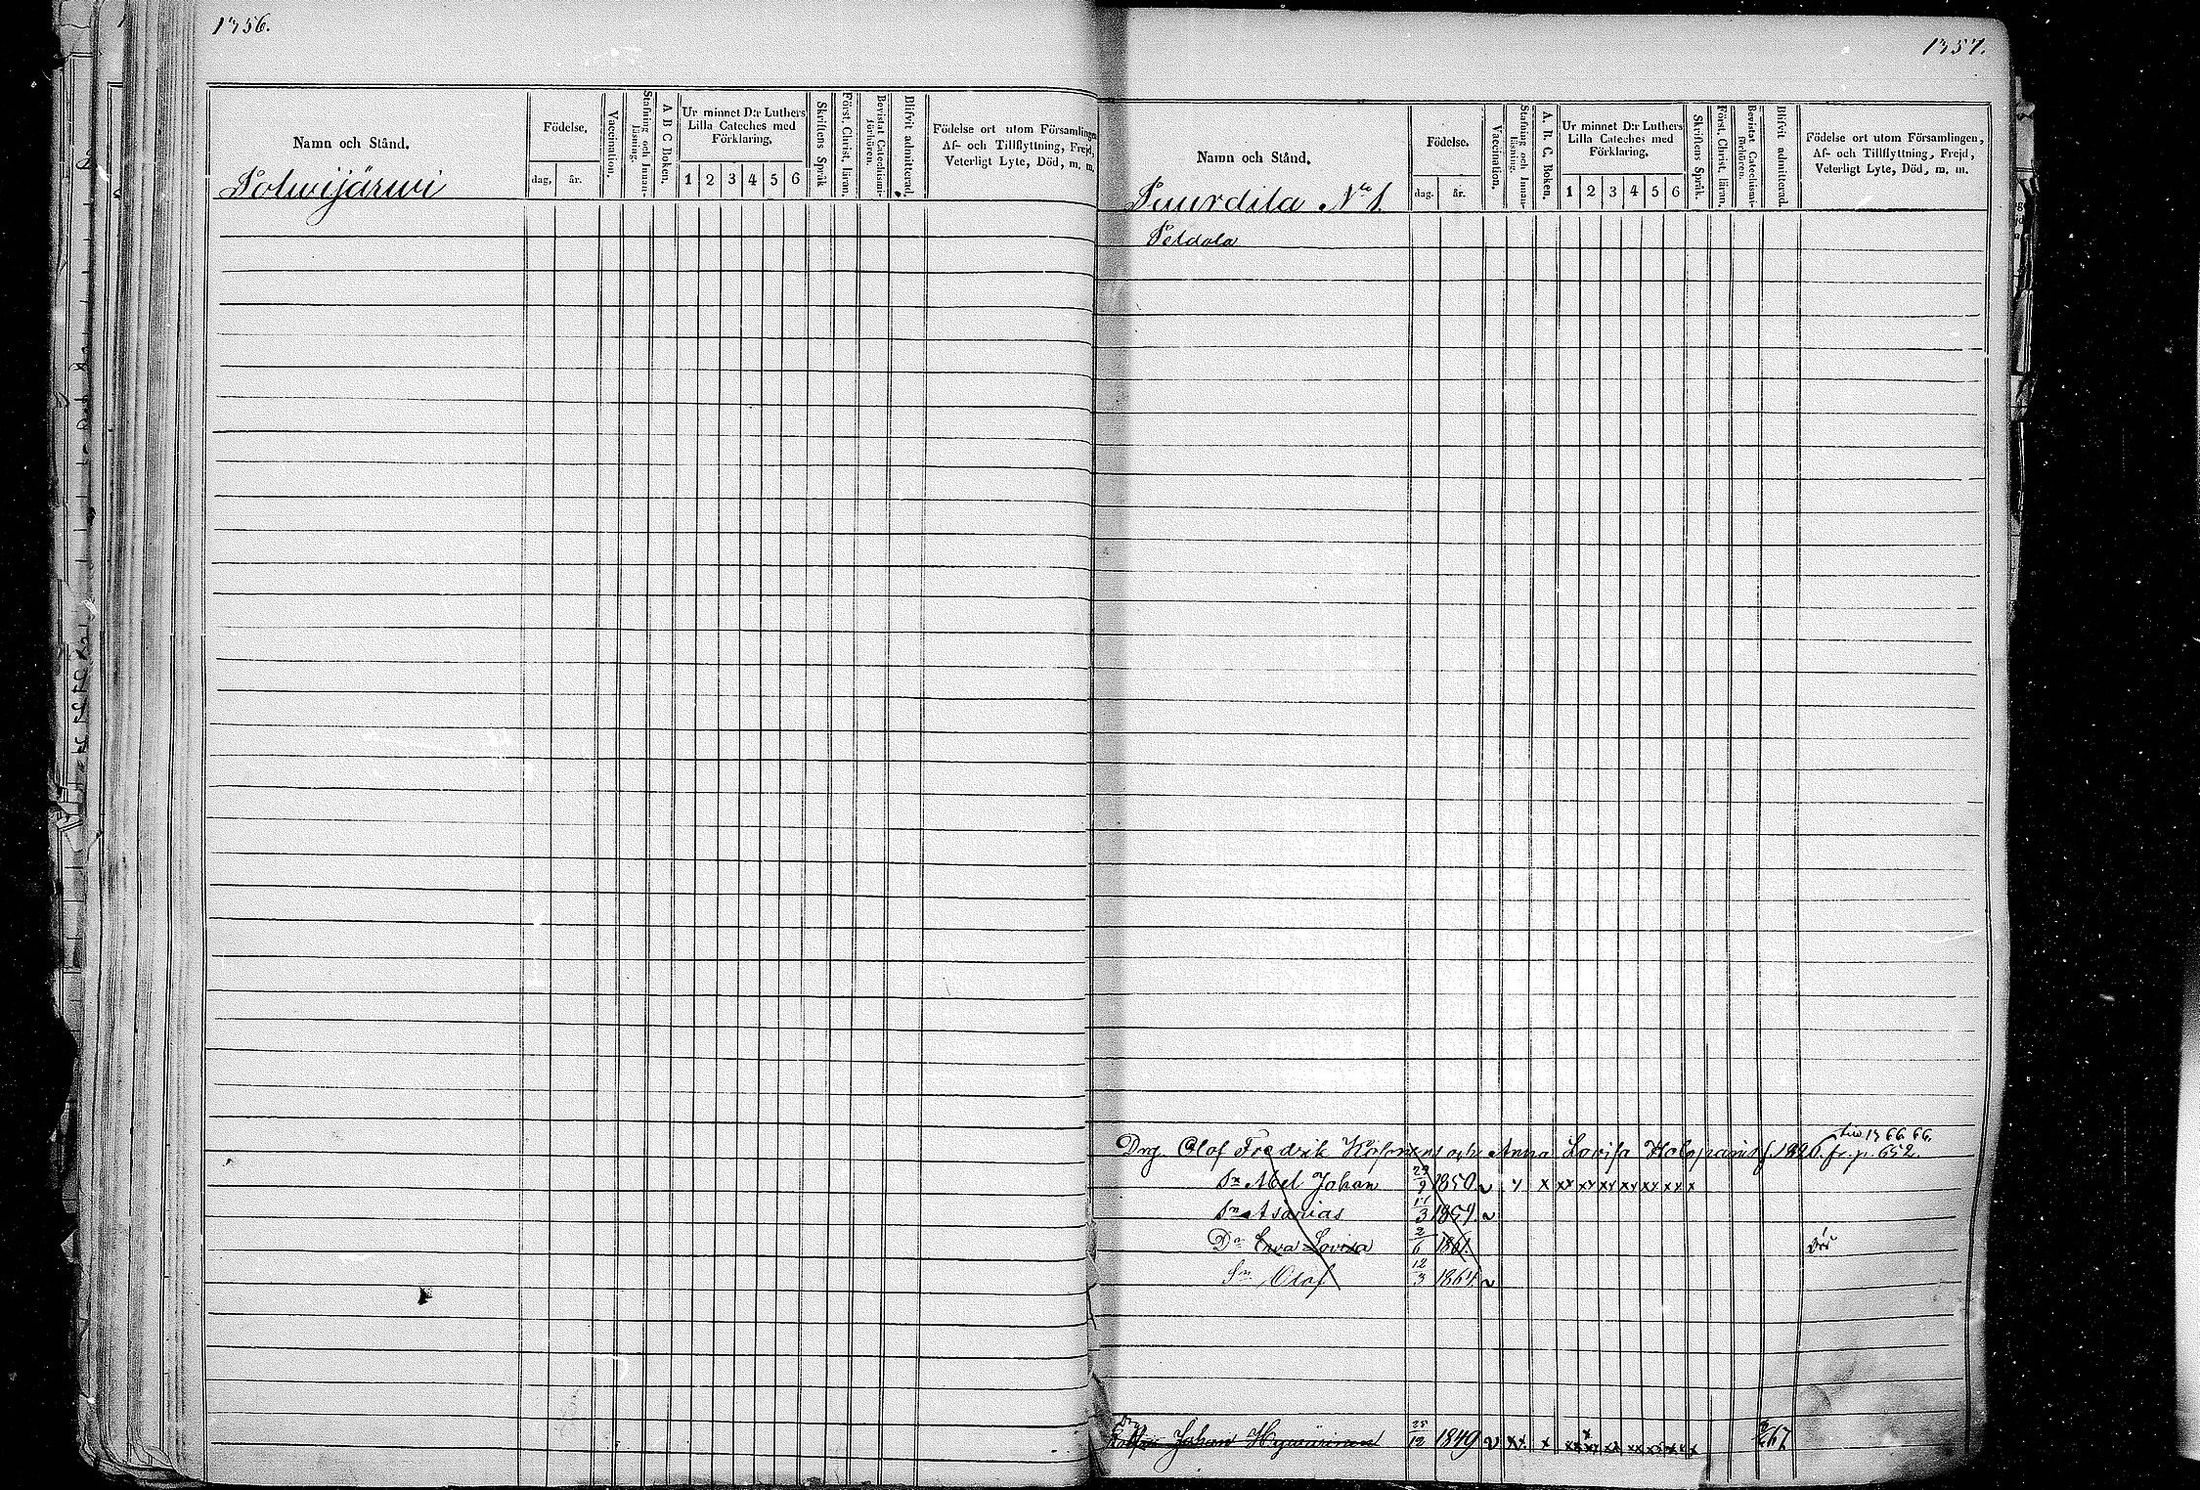 1356.
Namn och Stånd.
Födelse,
dag, år.
Vaccination.
Stafning och Innan-läsning.
A B C Boken.
Ur minnet D:r Luthers
Lilla Cateches med
Förklaring,
1 2 3 4 5 6
Skriftens Språk
Först. Christ. läran.
Bevistat Catechismi-förhören.
Blifvit admitterad.
Födelse ort utom Församlingen
Af- och Tillflyttning, Frejd,
Veterligt Lyte, Död, m. m.
Polwijärwi
1357.
Namn och Stånd.
Födelse.
dag. år.
Vaccination.
Stafning och Innan-läsning.
A. B. C. Boken.
Ur minnet D:r Luthers
Lilla Cateches med
Förklaring,
1 2 3 4 5 6
Skriftens Språk.
Först. Christ. läran.
Bevistat Catechismi-förhören.
Blifvit admitterad.
Födelse ort utom Församlingen,
Af- och Tillflyttning, Frejd,
Veterligt Lyte, Död, m. m.
N:o 1.
Peldola
66.66.
Drg. Olof Fredrik och Anna Lovisa f. 1826. fr. p. 652.
Sn Abel Johan 29/9 1850. v x xx xx xx xx xx xx x
Sn Asarias 3 v
Dr Ewa Lovisa 2/6 1861. Död
Sn Olof 12/3 1864. v
Drg
Johan Hywärinen 25/12 1849 v xx x xx xx xx xx xx xx x 67